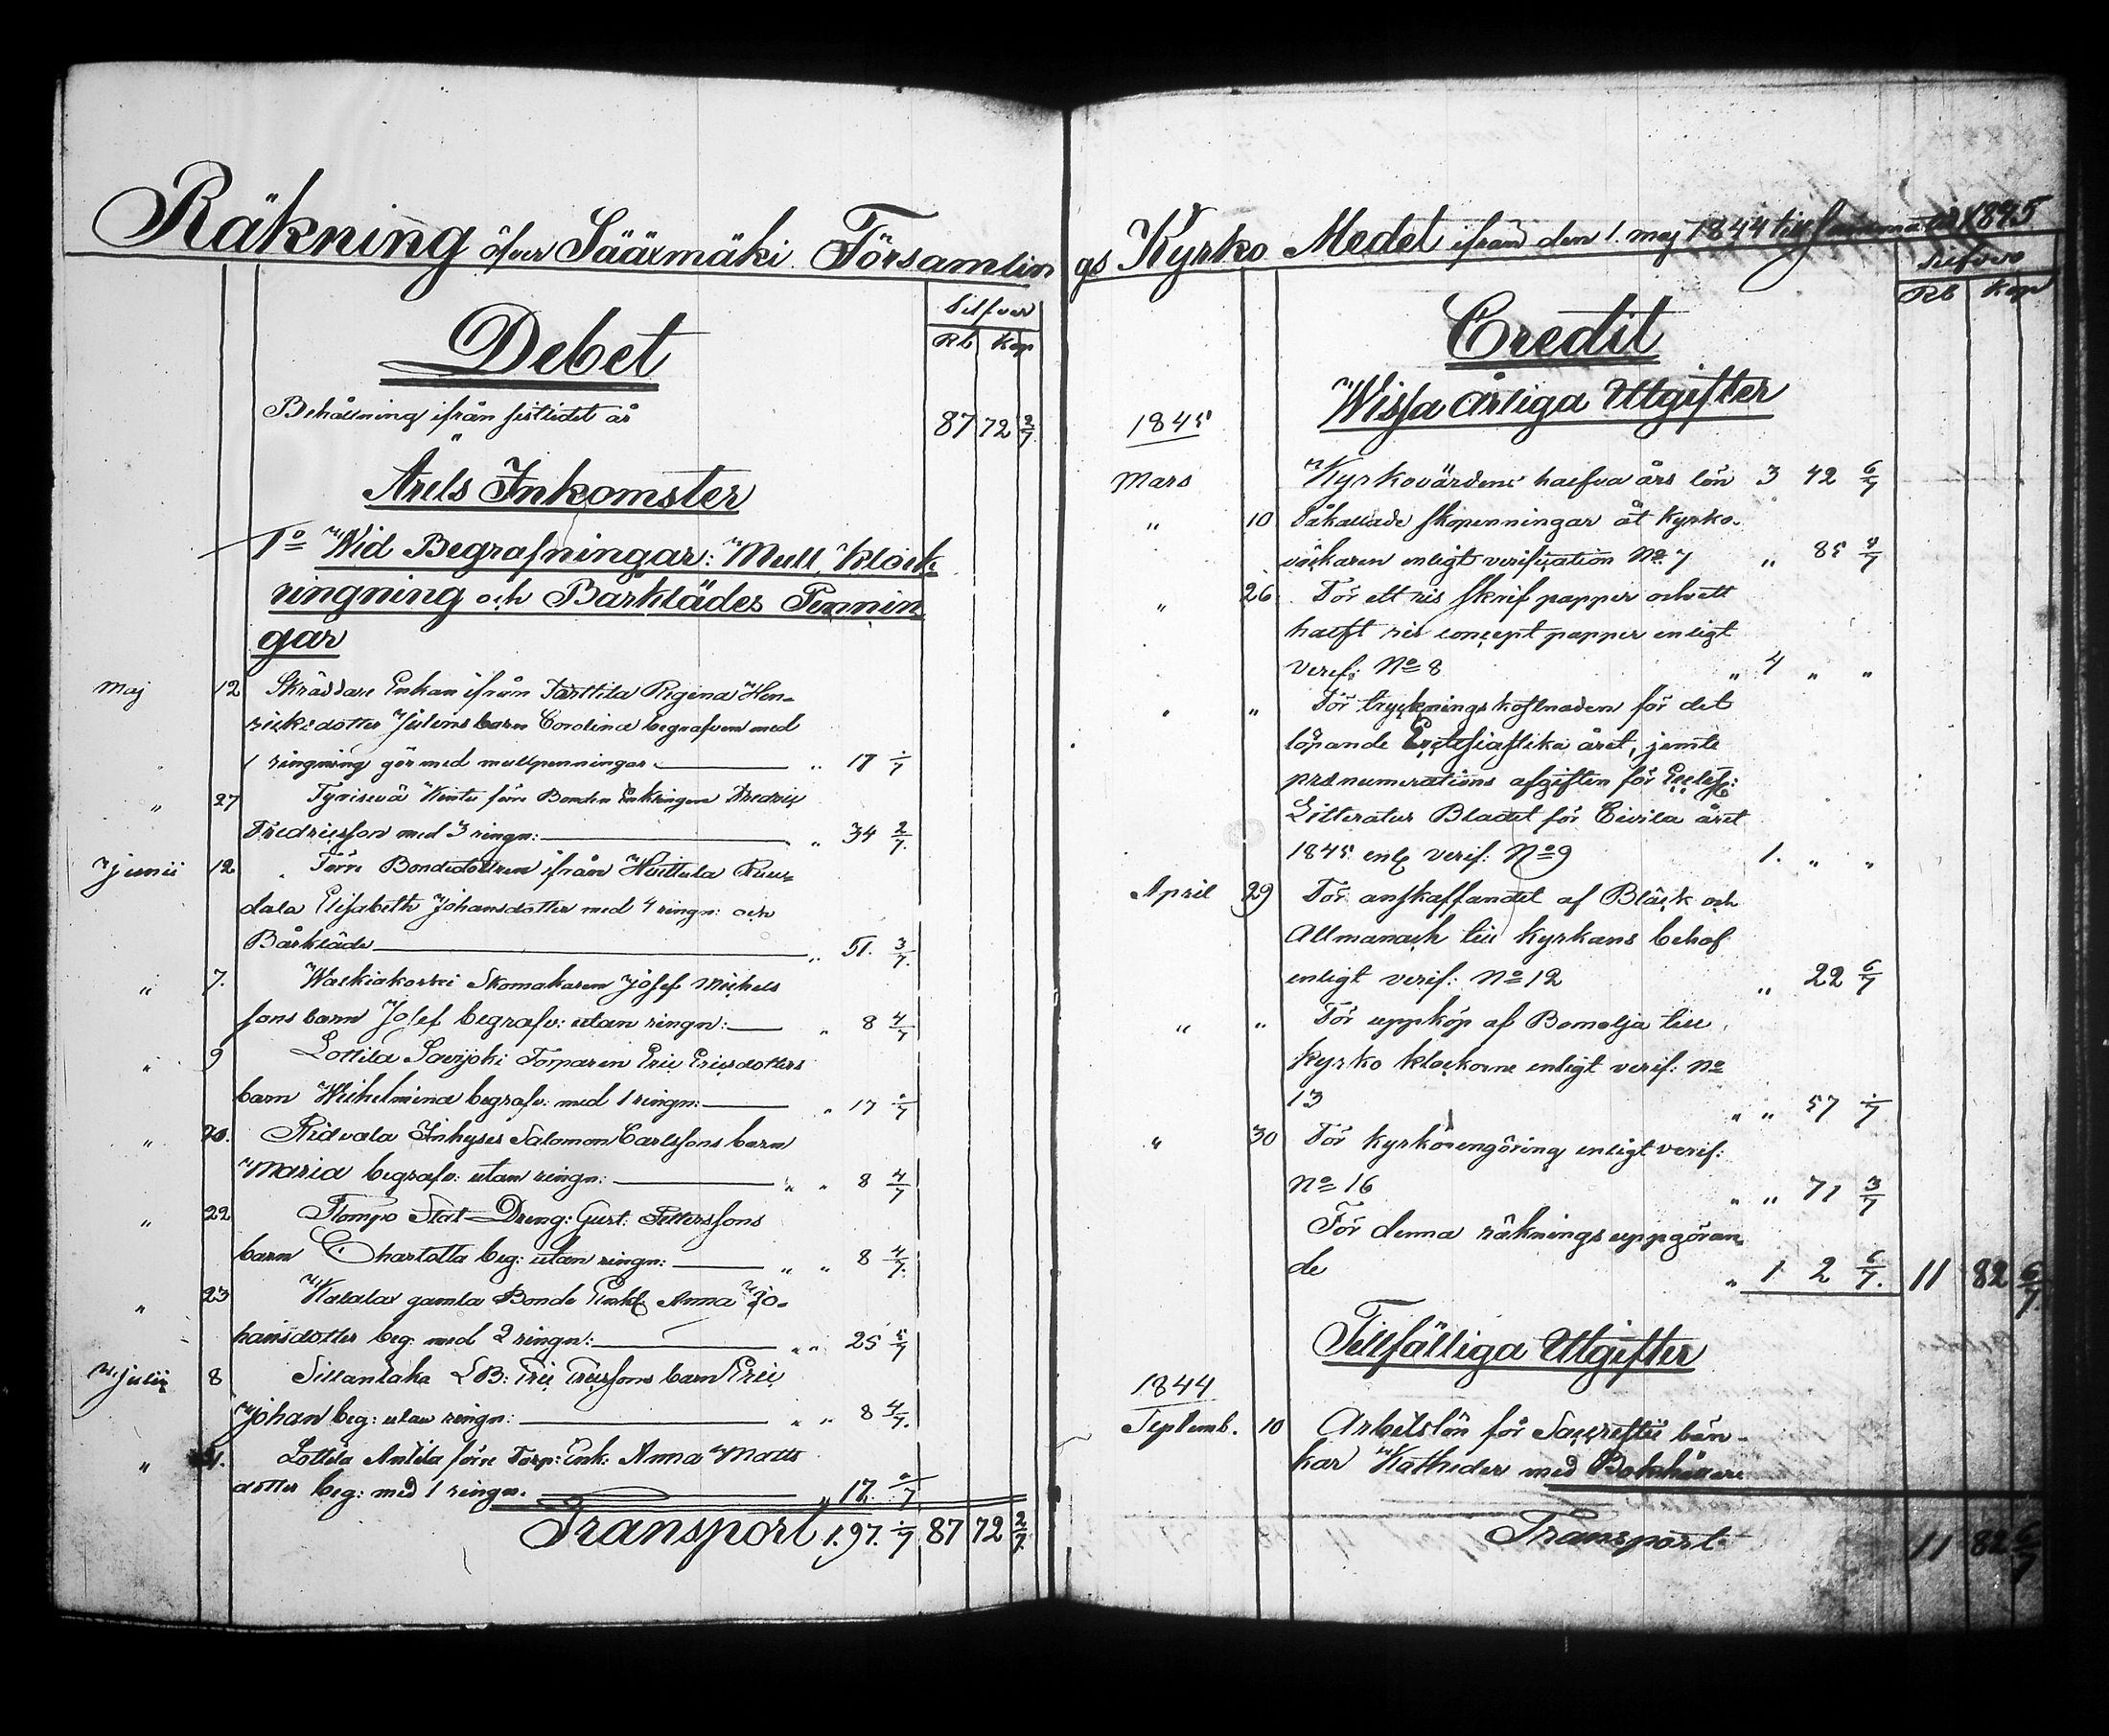 Räkning öfver Säärmäki Församlin
Debet
Silfver
Rb Kop
Behållning ifrån sistlidet år 87 72 2/7
Årets Inkomster
1o Wid Begrafningar: Mull, Klock
ringning och Barklädes Pennin
gar
Maj 12 Skräddare Enkan ifrån Tarttila Regina Hen-
ricksdotter Julins barn Carolina begrafven med
1 ringning gör med mullpenningar " 17 1/7
" 27 Tyrisevä Wento förre Bonden Fredrix
Fredricsson med 3 ringn: " 34 2/7
Junii 12 Förre Bondedottren ifrån Huittula
dala Elisabeth Johansdotter med 4 ringn: och
Bårkläde " 51. 3/7
" 7. Walkiakoski Skomakaren Josef Michels
sons barn Josef begrafv: utan ringn: " 8 4/7
" 9 Lottila Savijoki Torparen Eric Ericsdotters
barn Wilhelmina begrafv: med 1 ringn: " 17 1/7
" 20. Ridvala Inhyses Salomon Carlssons barn
Maria begrafv: utan ringn: " " 8 4/7
" 22 Rompo Stat Dreng: Gust: Pettersons
barn Charlotta beg: utan ringn: " " 8 4/7
" 23 gamla Bonde Enk: Anna Jo-
hansdotter beg: med 2 ringn: " " 25 5/7
Julii 8 Sillantaka LB: Eric Ericssons barn Eric
Johan beg: utan ringn: " " 8 4/7.
" Lottila Antila förre Torp: Enk: Anna Matts
dotter beg: med 1 ringn. " 17 1/7
Transport 1.97. 1/7 87 72 2/7
gs Kyrko Medel ifrån den 1. maj 1844 till samma tid 1845
Silfver
Rb Kop
Credit
Wissa årliga Utgifter
1845
Mars Kyrkovärdens halfva års lön 3 42 6/7
" 10 Såkallade skopenningar åt Kyrko-
väckaren enligt verification No 7 " 85 4/7
" 26 För ett ris skrif papper och ett
halft ris concept papper enligt
veref: No 8 " 4 " "
" " För tryckningskostnaden för det
löpande Ecclesiastika året, jemte
prænumerations afgiften för Eccles:
Litteratur Bladet för Civila året
1845 enl verif: No 9 1. " "
April 29 För anskaffandet af Bläck och
Allmanach till kyrkans behof
enligt verif: No 12 " 22 6/7
" " För uppköp af Bomolja till
kyrko klockorne enligt verif: No
13 " " 57 1/7
" 30 För kyrkorengöring enligt verif:
No 16 " " 71 3/7
För denna räknings uppgöran-
de " 1 2 6/7. 11 82 6/7
Tillfälliga Utgifter
1844
Septemb. 10 Arbetslön för Sacristii bän-
kar Katheder med
Transport 11 82 6/7